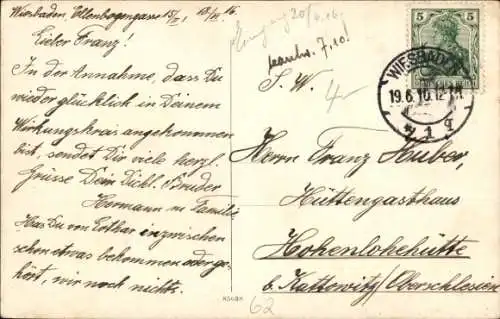 Wiesbaden, Ellenbogengasse 15/II, 18/VI. 16.
Lieber Franz!
In der Annahme, dass Du
wieder glücklich in Deinem
Wirkungskreis angekommen
bist, sendet Dir viele herzl.
Grüsse Dein Dichl. Bruder
Hermann u. Familie
Has Du von Lothar inzwischen
schon etwas bekommen oder ge-
hört, wir noch nichts.
Eingang 20/6.16
7.10!
S. W.
5
WIESBADEN
19.6.16.12-1N.
* 1 q
Herrn Franz Huber,
Hüttengasthaus
Hohenlohehütte
b. Kattowitz/Oberschlesien
62